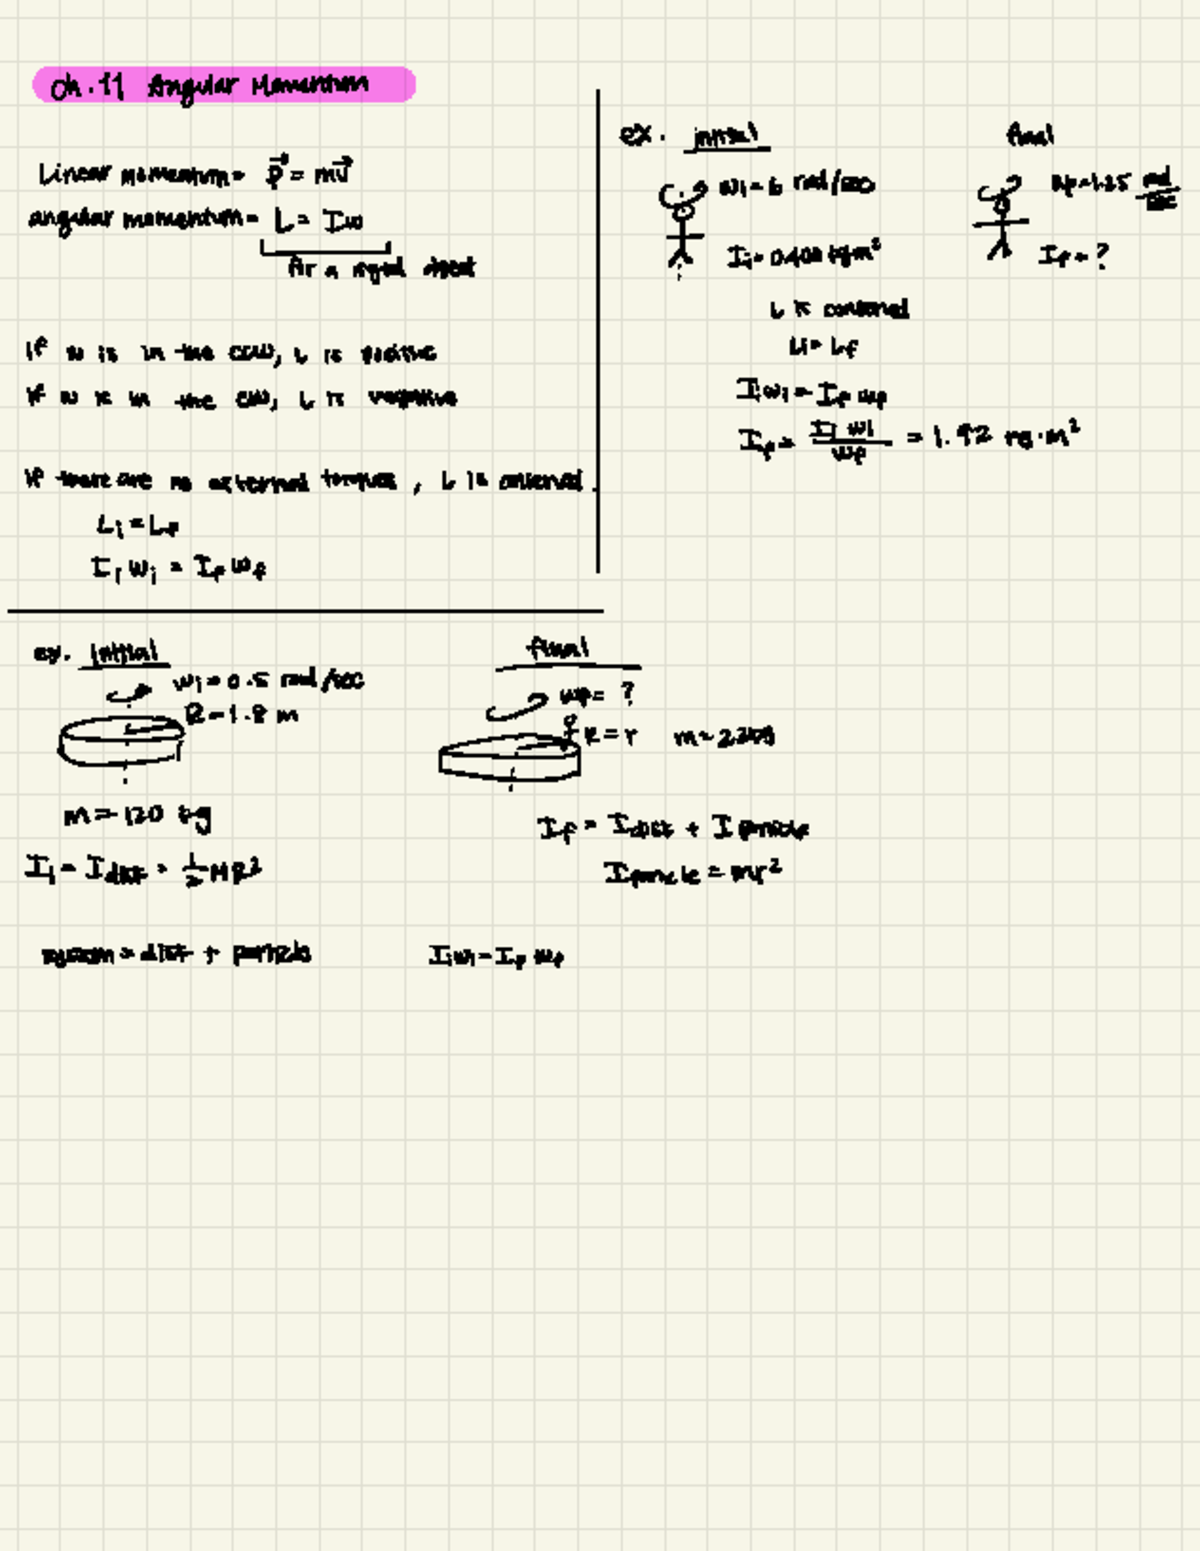 Ch. 11 Angular Momentum
Linear momentum = p⃗ = mv⃗
angular momentum = L = Iω
for a rigid object
If ω is in the CCW, L is positive
If ω is in the CW, L is negative
If there are no external torques, L is conserved.
Li = Lf
Ii ωi = If ωf
ex. initial
final
ωi = 6 rad/sec
ωf = 1.25 rad/sec
If = ?
L is conserved
Li = Lf
Ii ωi = If ωf
If = Ii ωi / ωf = 1.92 kg·m²
ex. initial
final
ωi = 0.5 rad/sec
R = 1.8 m
m = 120 kg
Ii = Idisk = 1/2 MR²
ωf = ?
R = r
If = Idisk + Iparticle
Iparticle = mr²
system = disk + particle
Ii ωi = If ωf